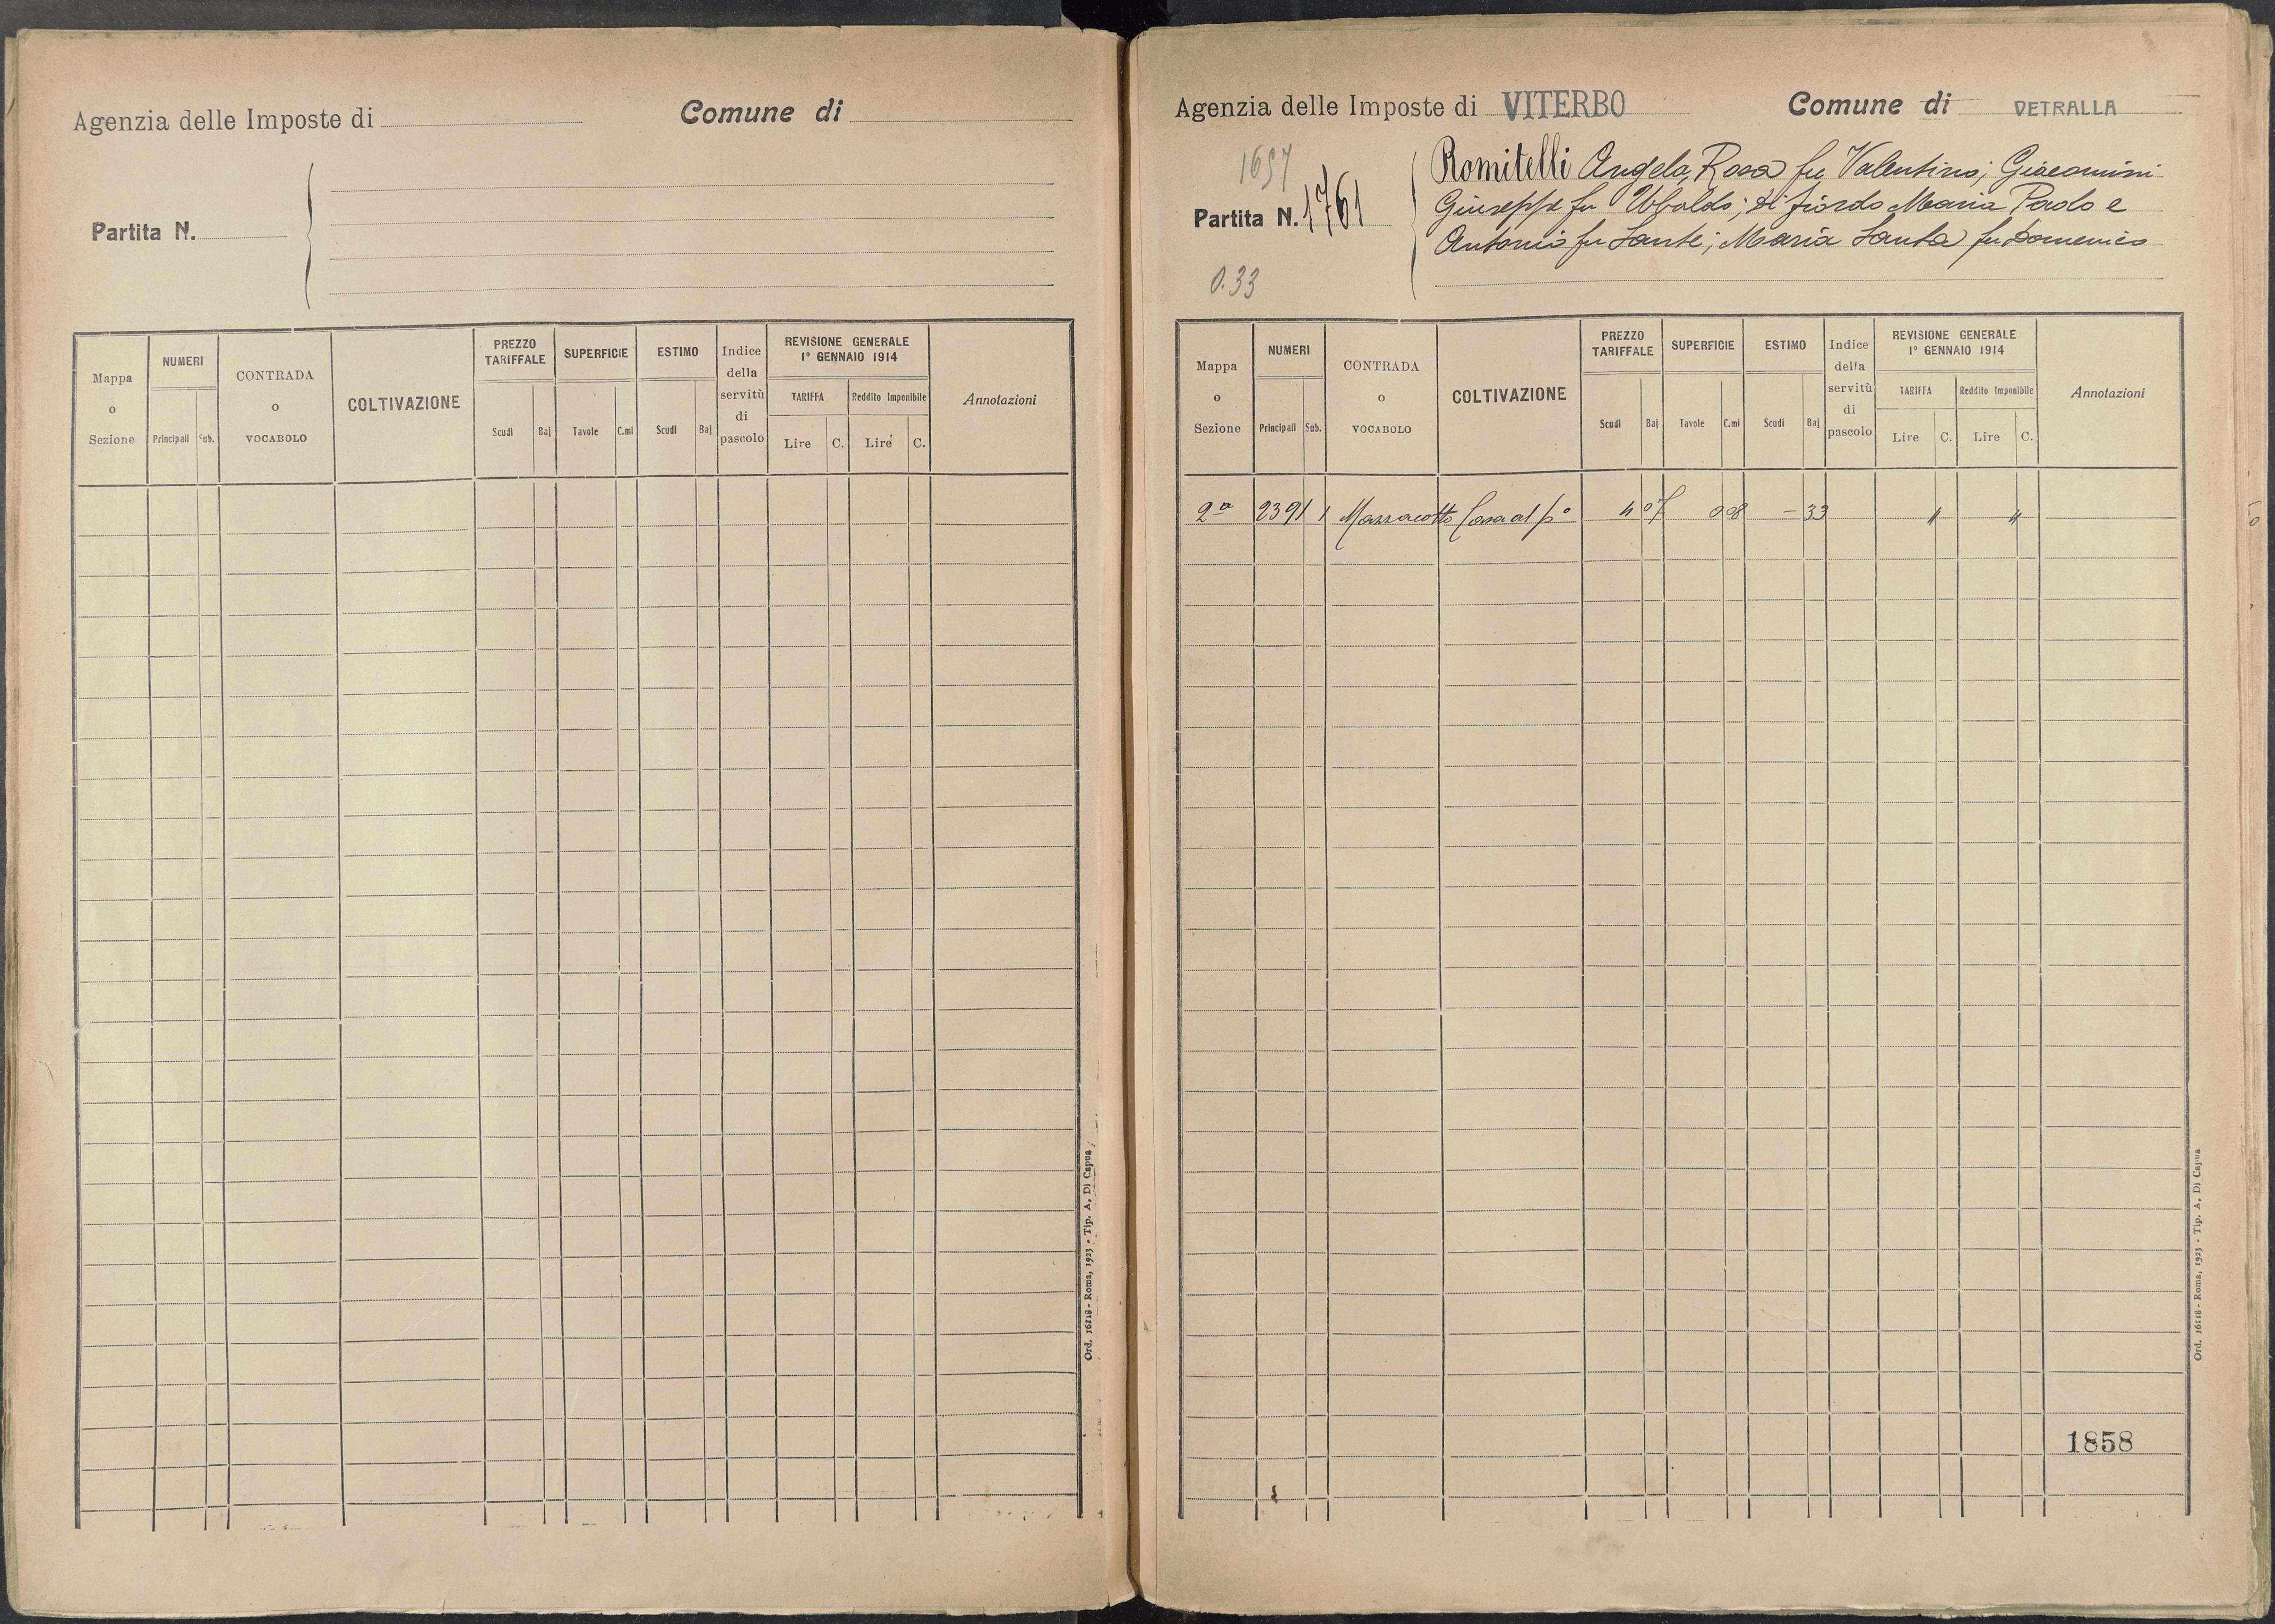 Agenzia delle Imposte di
Comune di
Partita N.
Mappa o Sezione
NUMERI
Principali
Sub.
CONTRADA o VOCABOLO
COLTIVAZIONE
PREZZO TARIFFALE
Scudi
Baj
SUPERFICIE
Tavole
C.mi
ESTIMO
Scudi
Baj
Indice della servitù di pascolo
REVISIONE GENERALE
1º GENNAIO 1914
TARIFFA
Reddito Imponibile
Lire
C.
Lire
C.
Annotazioni
Ord. 16118 - Roma, 1923 - Tip. A. Di Capua
Agenzia delle Imposte di VITERBO
Comune di VETRALLA
1697
Partita N. 1761
0.33
Romitelli Angela, Rosa fu Valentino; Giacomini
Giuseppe fu Ubaldo; di fiordo Maria Paolo e
Antonio fu Sante; Maria Santa fu Domenico
Mappa o Sezione
NUMERI
Principali
Sub.
CONTRADA o VOCABOLO
COLTIVAZIONE
PREZZO TARIFFALE
Scudi
Baj
SUPERFICIE
Tavole
C.mi
ESTIMO
Scudi
Baj
Indice della servitù di pascolo
REVISIONE GENERALE
1º GENNAIO 1914
TARIFFA
Reddito Imponibile
Lire
C.
Lire
C.
Annotazioni
2ª 2391 1 Mazzacotto Casa al pº 4 07 0 08 - 33 " "
1858
Ord. 16118 - Roma, 1923 - Tip. A. Di Capua